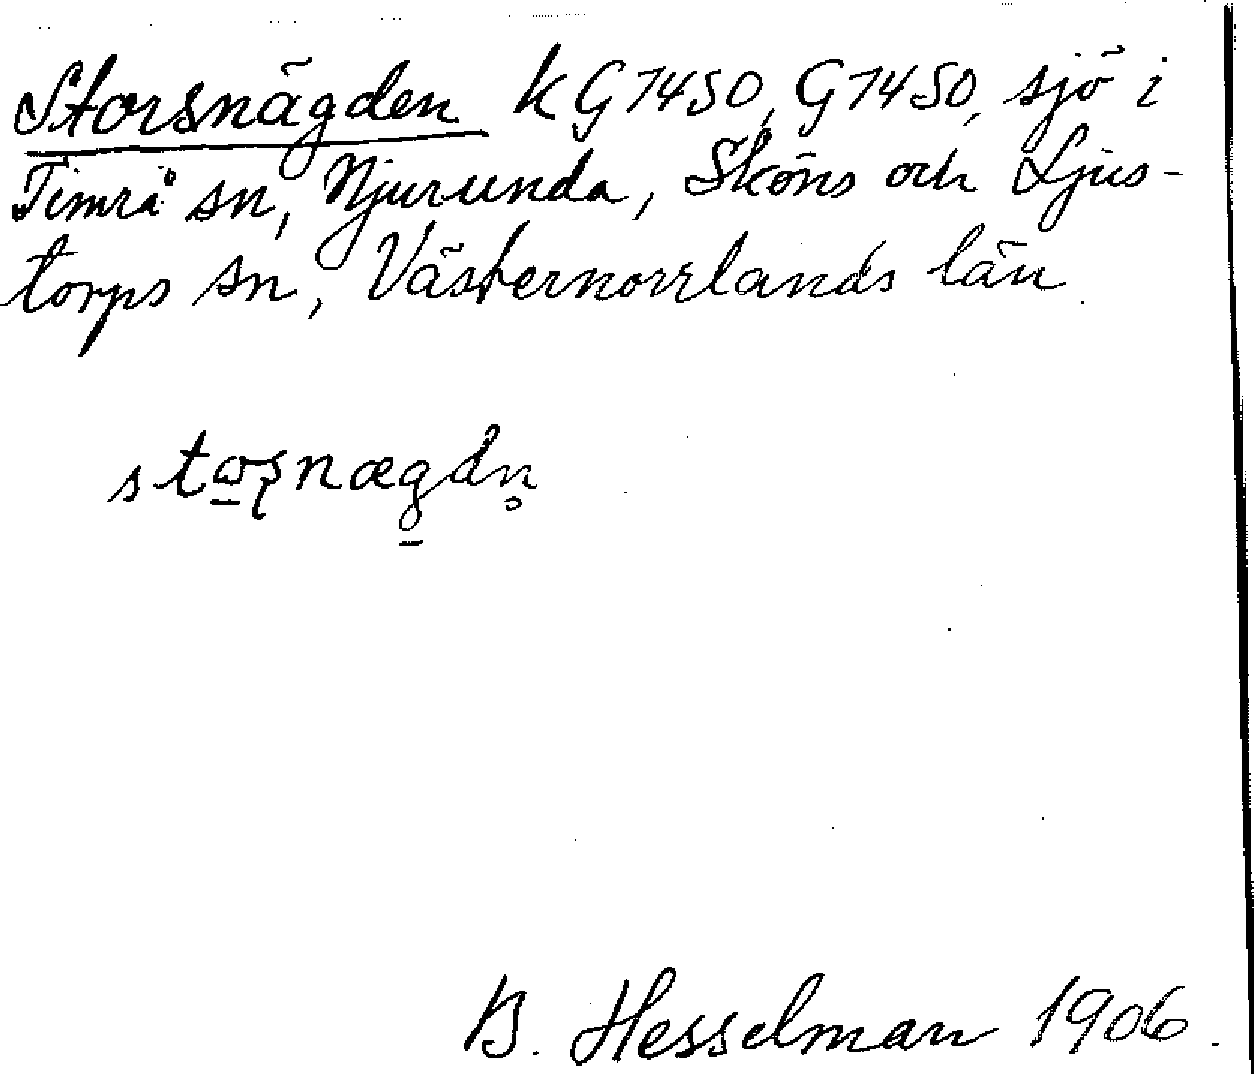 Storsnägden kG7450, G7450, sjö i
Timrå sn, Njurunda, Sköns och Ljus-
torps sn, Västernorrlands län
B. Hesselman 1906.